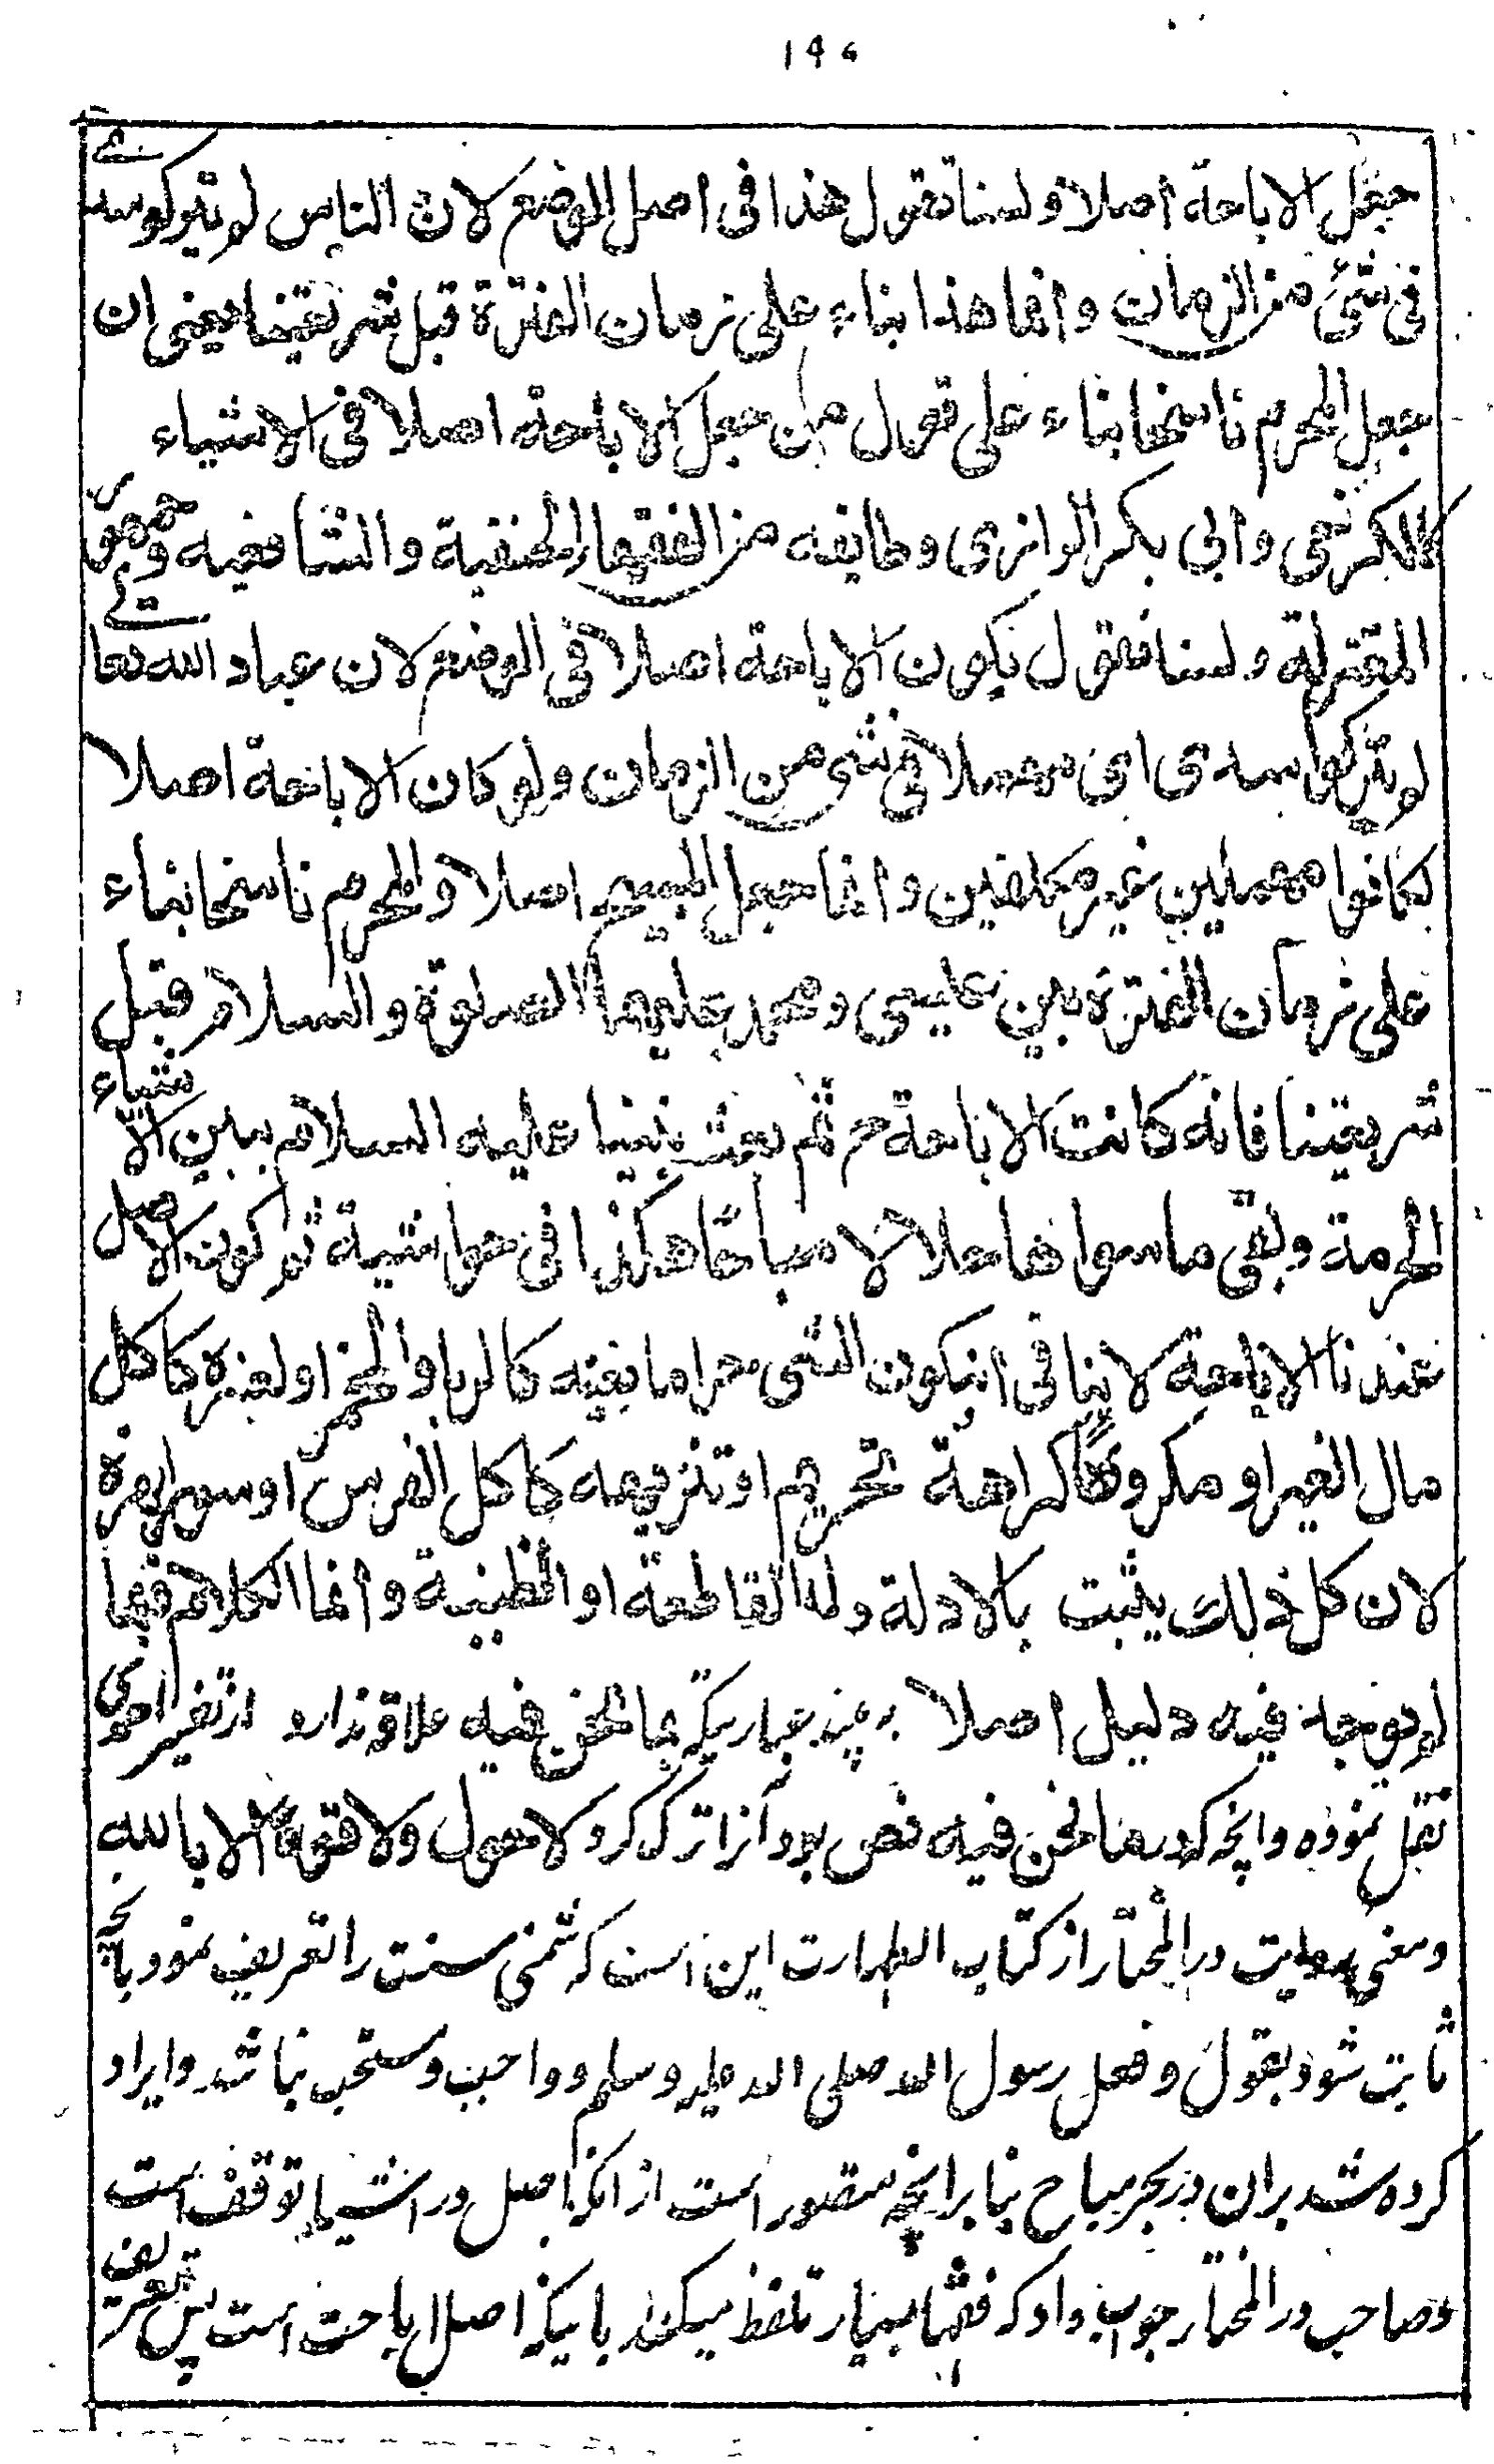 ۱۴۶
جعل الاباحة اصلا ولسنا نقول هذا فى اصل الوضع لان الناس لم يتركوا سدى
فى شئ من الزمان وانما هذا بناء على زمان الفترة قبل شريعتنا يعنى ان
جعل المحرم ناسخا بناء على قول من جعل الاباحة اصلا فى الاشياء
كالكرخى وابى بكر الرازى وطايفه من الفقهاء الحنفية والشافعيه وجمهور
المعتزلة ولسنا نقول بكون الاباحة اصلا فى الوضع لان عباد الله تعالى
لم يتركوا سدى اى مهملا فى شى من الزمان ولو كان الاباحة اصلا
لكانوا مهملين غير مكلفين وانما جعل المبيح اصلا والمحرم ناسخا بناء
على زمان الفترة بين عليسى ومحمد عليهما الصلوة والسلام قبل
شريعتنا فانه كانت الاباحة ح ثم بعث نبينا عليه السلام يبين الاشياء
الحرمة وبقى ماسواها حلالا مباحًا هكذا فى حواشية ثم كون الاصل
عندنا الاباحة لا ينافى انيكون الشى حراما بعينه كالربا والخمر او لغيره كاكل
مال الغير او مكروهًا كراهة تحريم او تنزيهه كاكل الفرس او سور الهرة
لان كل ذلك يثبت بالادلة ولها القاطعة او الظنية وانما الكلام فيما
لم يوجد فيه دليل اصلا به بيند عبارتيكه بما نحن فيه علاقه ندارد از تفسير احمدى
نقل نموده وانچه كه در ما نحن فيه نص بود آنرا ترك كرد لا حول ولا قوة الا بالله
ومعنى روايت در المختار از كتاب الطهارت اين است كه شمنى سنت را تعريف نمود بانچه
ثابت شود بقول وفعل رسول الله صلى الله عليه وسلم وواجب ومستحب نباشد وايراد
كرده شد بران در بحر مباح بنا بر انچه متصور است از انكه اصل در اشيا توقف است
وصاحب در المختار جواب داد كه فقها بسيار تلفظ ميكنند باينكه اصل اباحت است پس تعريف